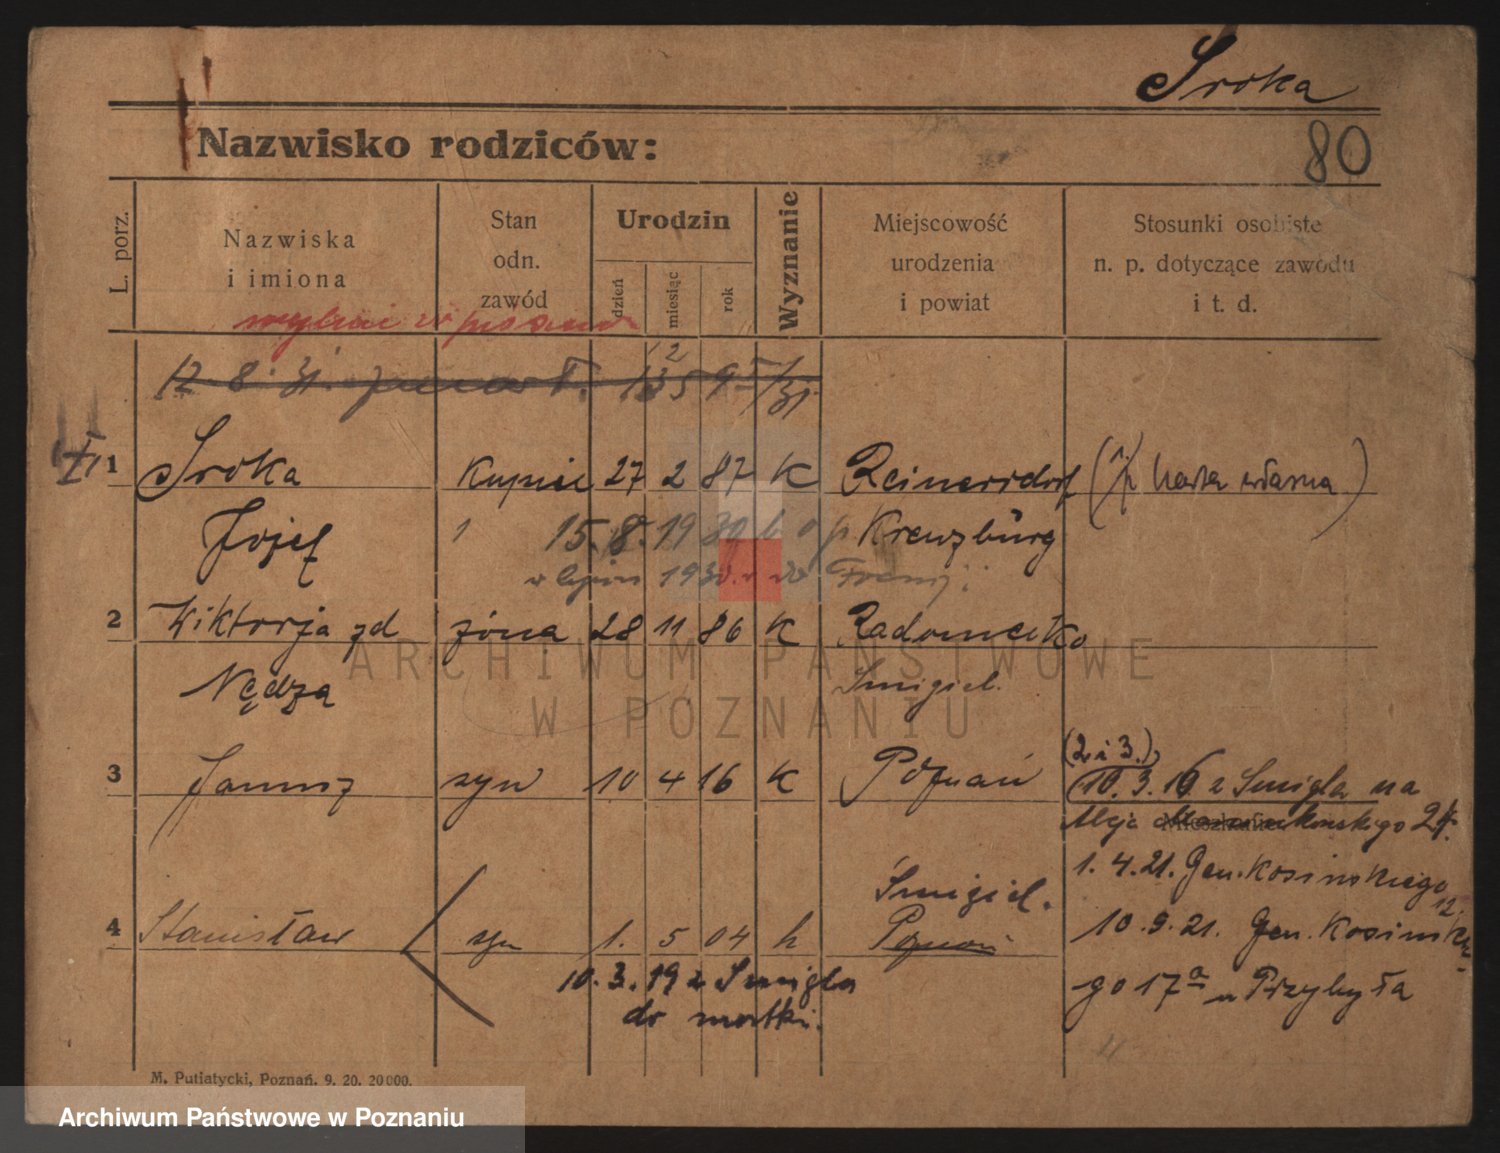 Sroka
80
Nazwisko rodziców:
L. porz.
Nazwiska
i imiona
Stan
odn.
zawód
Urodzin
dzień
miesiąc
rok
Wyznanie
Miejscowość
urodzenia
i powiat
Stosunki osobiste
n. p. dotyczące zawodu
i t. d.
12 8. 31.
1 Sroka kupiec 27 2 87 K Reinersdorf ( karta własna )
Józef 15. 8. 1930 Kreuzburg
w lipcu 1930. do Francji
2 Wiktorja zd żona 28 11 86 K Radomicko
Nędza Śmigiel.
(2. i 3.)
3 Janusz syn 10 4 16 K Poznań 10. 3. 16 z Śmigla na
Aleje Marcinkowskiego
Mieszkanie
1. 4. 21. Gen. Kosińskiego
12.
Śmigiel.
4 Stanisław syn 1. 5 04 k Poznań 10. 9. 21. Gen. Kosińskie-
10. 3. 19 z Śmigla go 17a u Przybyła
do matki.
M. Putiatycki, Poznań. 9. 20. 20000.
ARCHIWUM PAŃSTWOWE
W POZNANIU
Archiwum Państwowe w Poznaniu